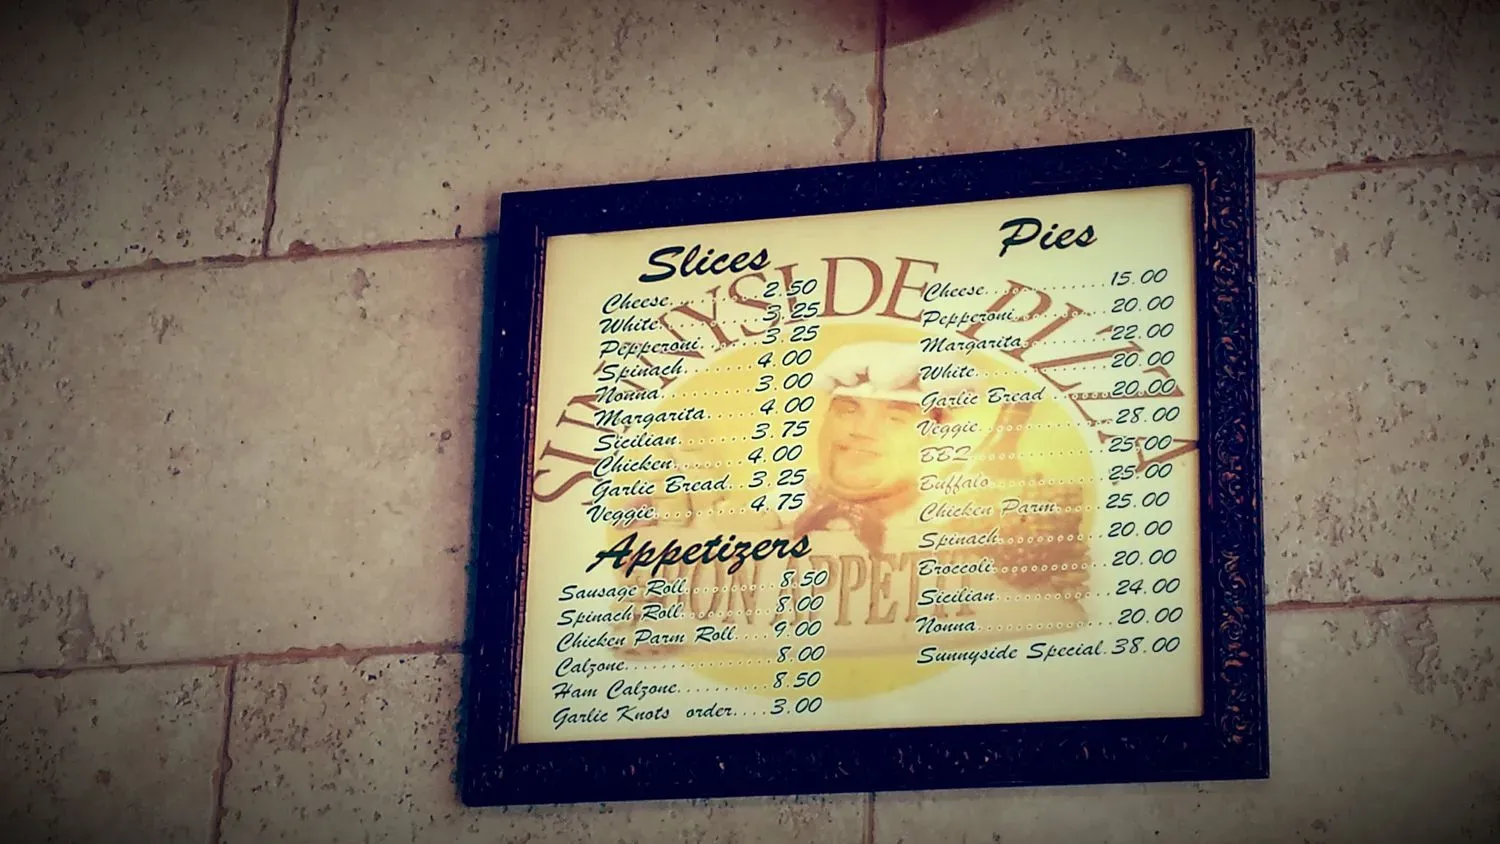 SUNNYSIDE PIZZA
Slices
Cheese..........2.50
White...........3.25
Pepperoni.......3.25
Spinach.......4.00
Nonna.........3.00
Margarita.....4.00
Sicilian.......3.75
Chicken.......4.00
Garlic Bread..3.25
Veggie.........4.75
Appetizers
Sausage Roll.........8.50
Spinach Roll.........8.00
Chicken Parm Roll....9.00
Calzone..............8.00
Ham Calzone..........8.50
Garlic Knots order....3.00
Pies
Cheese............15.00
Pepperoni.........20.00
Margarita........22.00
White.............20.00
Garlic Bread ......20.00
Veggie............28.00
BBQ..............25.00
Buffalo...........25.00
Chicken Parm.....25.00
Spinach..........20.00
Broccoli..........20.00
Sicilian...........24.00
Nonna.............20.00
Sunnyside Special.38.00
BON APPETIT